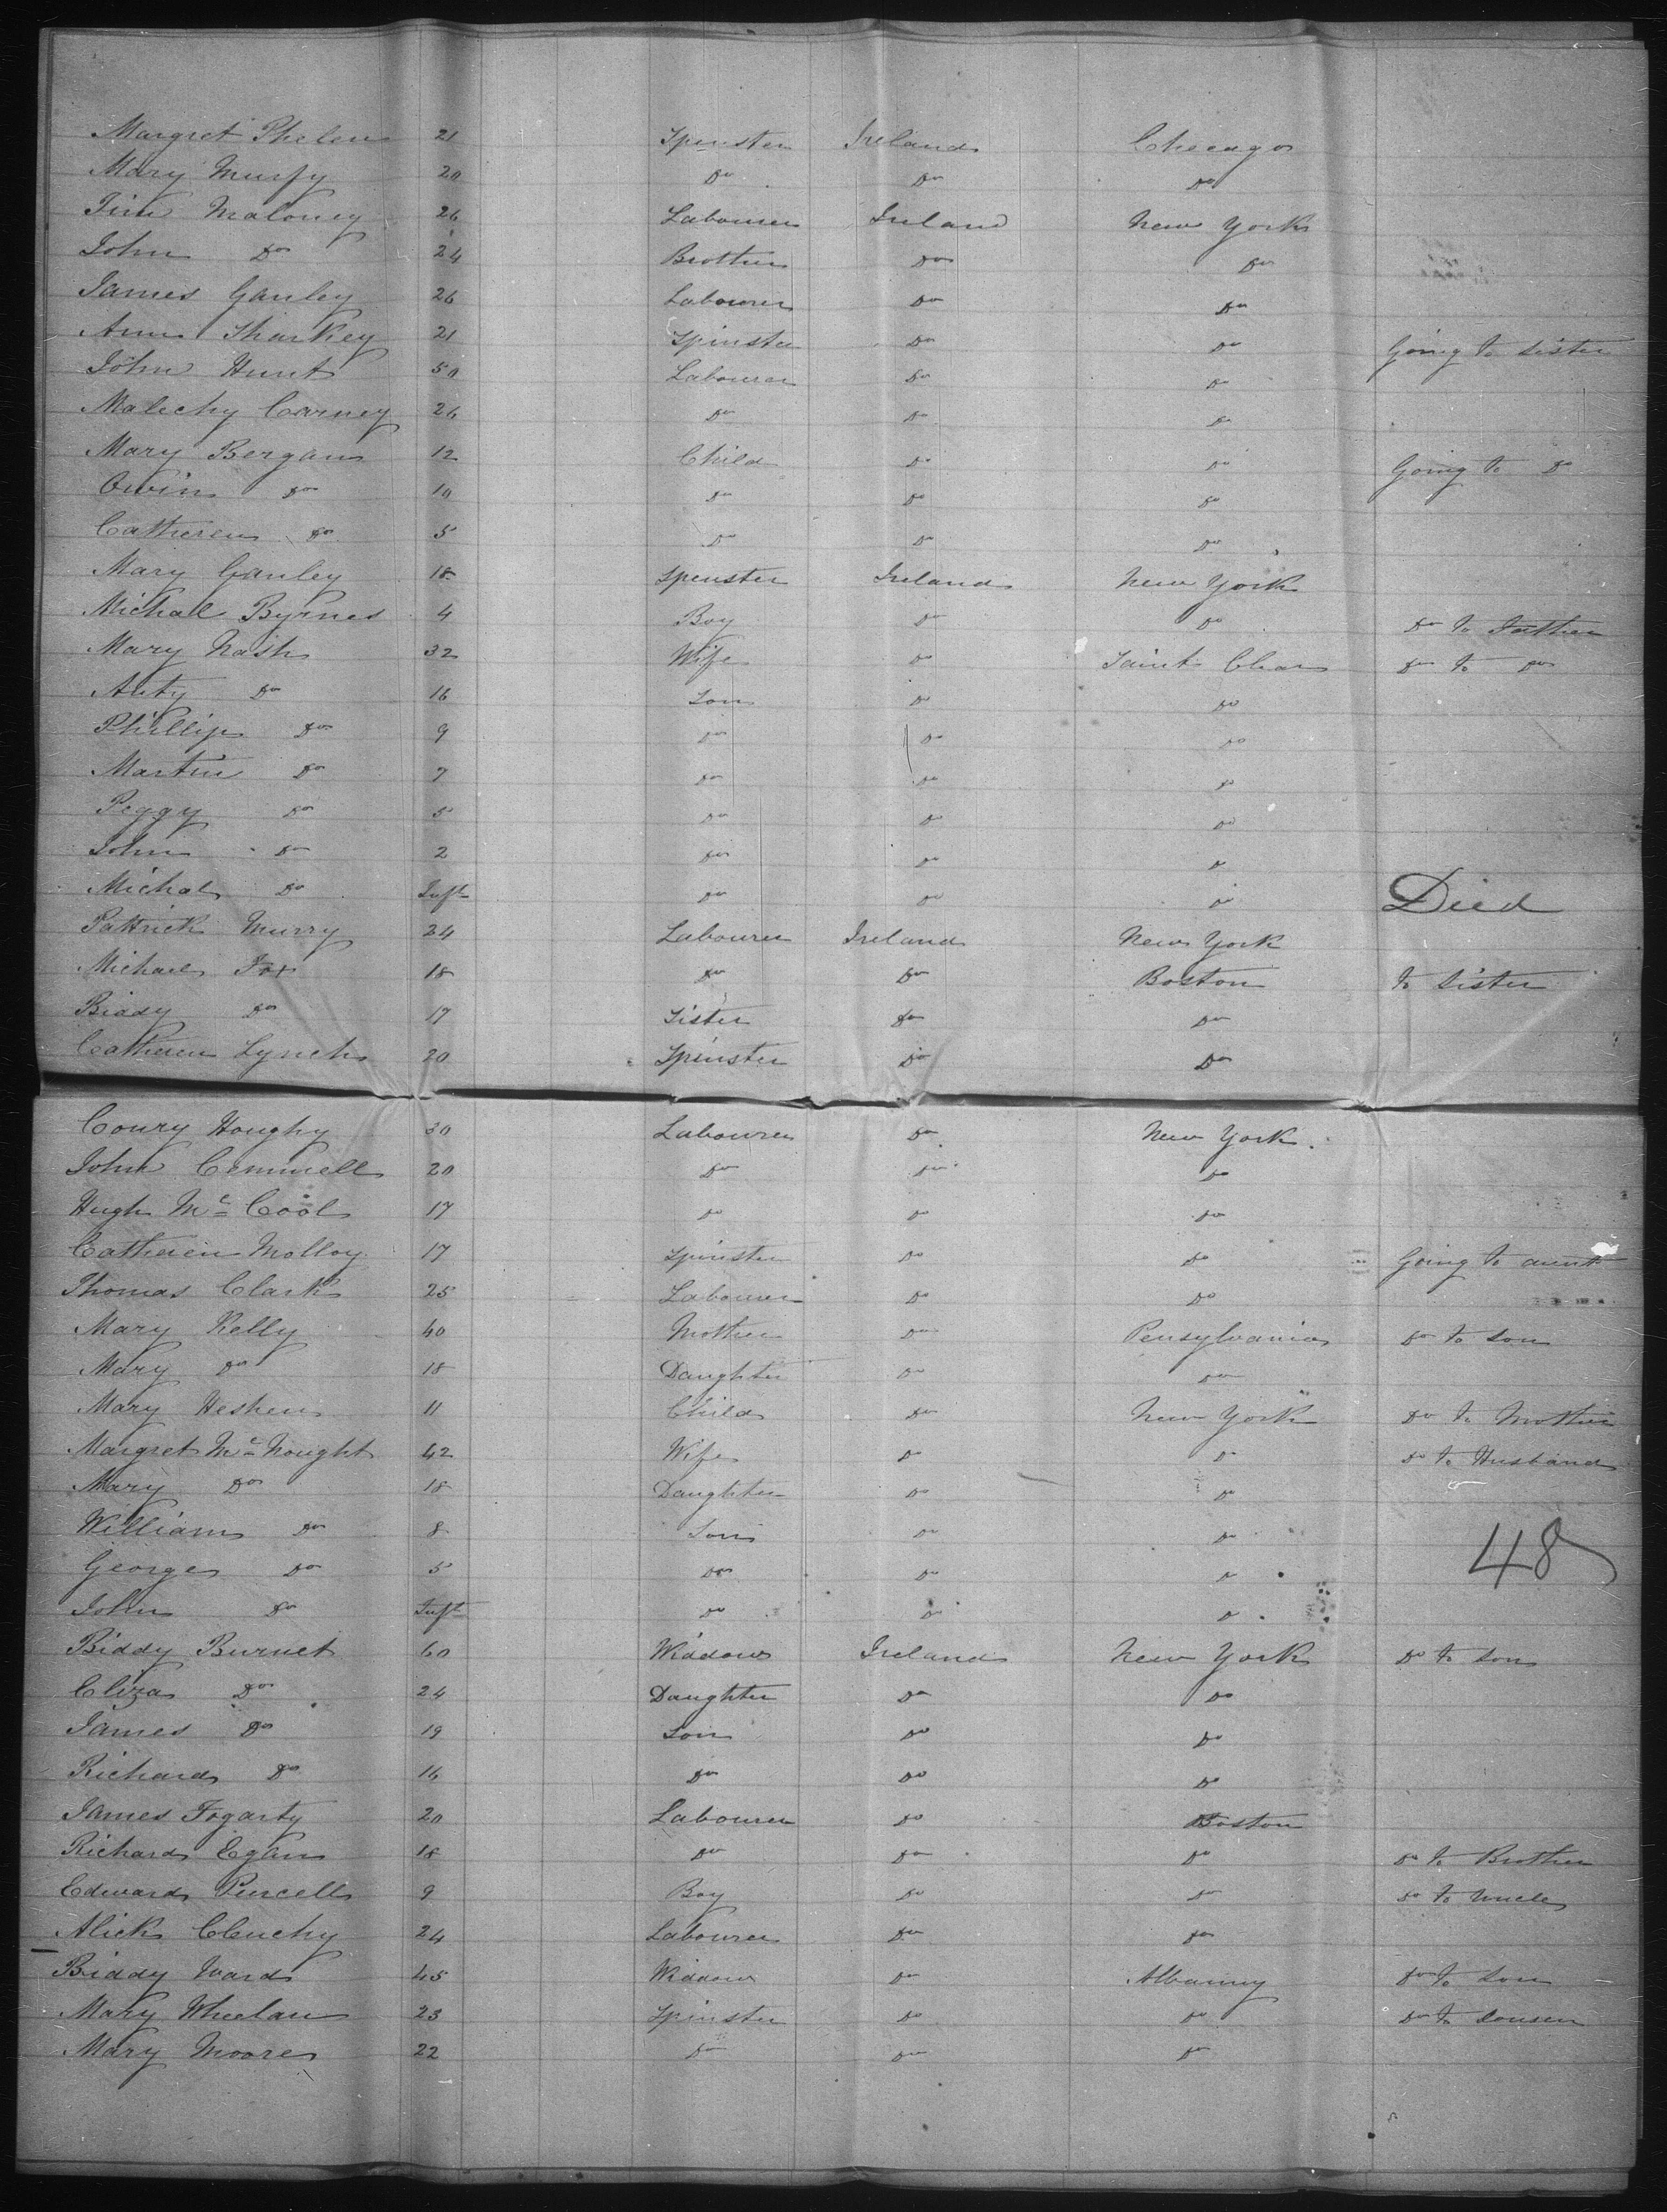 Margret Phelen 21 Spinster Ireland Checago
Mary Murfy 20 Do Do Do
Tim Maloney 26 Labourer Ireland New York
John Do 24 Brother Do Do
James Ganley 26 Labourer Do Do
Ann Sharkey 21 Spinster Do Do Going to sister
John Hunt 50 Labourer Do Do
Malechy Carney 26 Do Do Do
Mary Bergan 12 Child Do Do Going to Do
Owin Do 10 Do Do Do
Catheren Do 5 Do Do Do
Mary Ganley 18 Spenster Ireland New York
Michal Byrnes 4 Boy Do Do Do to Father
Mary Nash 32 Wife Do Saint Clear Do to Do
Anty Do 16 Son Do Do
Phillip Do 9 Do Do Do
Martin Do 7 Do Do Do
Peggy Do 5 Do Do Do
John Do 2 Do Do Do
Michal Do Inft Do Do Do Died
Pattrick Murry 24 Labourer Ireland New York
Michael Fox 18 Do Do Boston to sister
Biddy Do 17 Sister Do Do
Catheren Lynch 20 Spinster Do Do
Coury Houghy 30 Labourer Do New York
John Cemmell 20 Do Do Do
Hugh Mc Cool 17 Do Do Do
Catheren Molloy 17 Spinster Do Do Going to aunt
Thomas Clark 25 Labourer Do Do
Mary Kelly 40 Mother Do Pensylvania Do to son
Mary Do 18 Daughter Do Do
Mary Heshen 11 Child Do New York Do to Mother
Margret Mc Nought 42 Wife Do Do Do to Husband
Mary Do 18 Daughter Do Do
William Do 8 Son Do Do
48
George Do 5 Do Do Do
John Do Inft Do Do Do
Biddy Burnet 60 Widdow Ireland New York Do to son
Eliza Do 24 Daughter Do Do
James Do 19 Son Do Do
Richard Do 16 Do Do Do
James Fogarty 20 Labourer Do Boston
Richard Egan 18 Do Do Do Do to Brother
Edward Purcell 9 Boy Do Do Do to Uncle
Alick Cluchy 24 Labourer Do Do
Biddy Ward 45 Widdow Do Albanny Do to son
Mary Wheelan 23 Spinster Do Do Do to Cousen
Mary Moore 22 Do Do Do